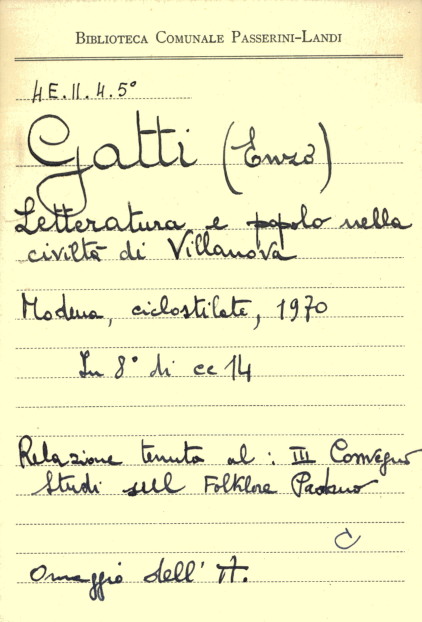 BIBLIOTECA COMUNALE PASSERINI-LANDI
4E.II.4.5°
Gatti (Enzo)
Letteratura e popolo nella
civiltà di Villanova
Modena, ciclostilate, 1970
In 8° di cc 14
Relazione tenuta al: III Convegno
Studi sul Folklore Padano
C
Omaggio dell'A.